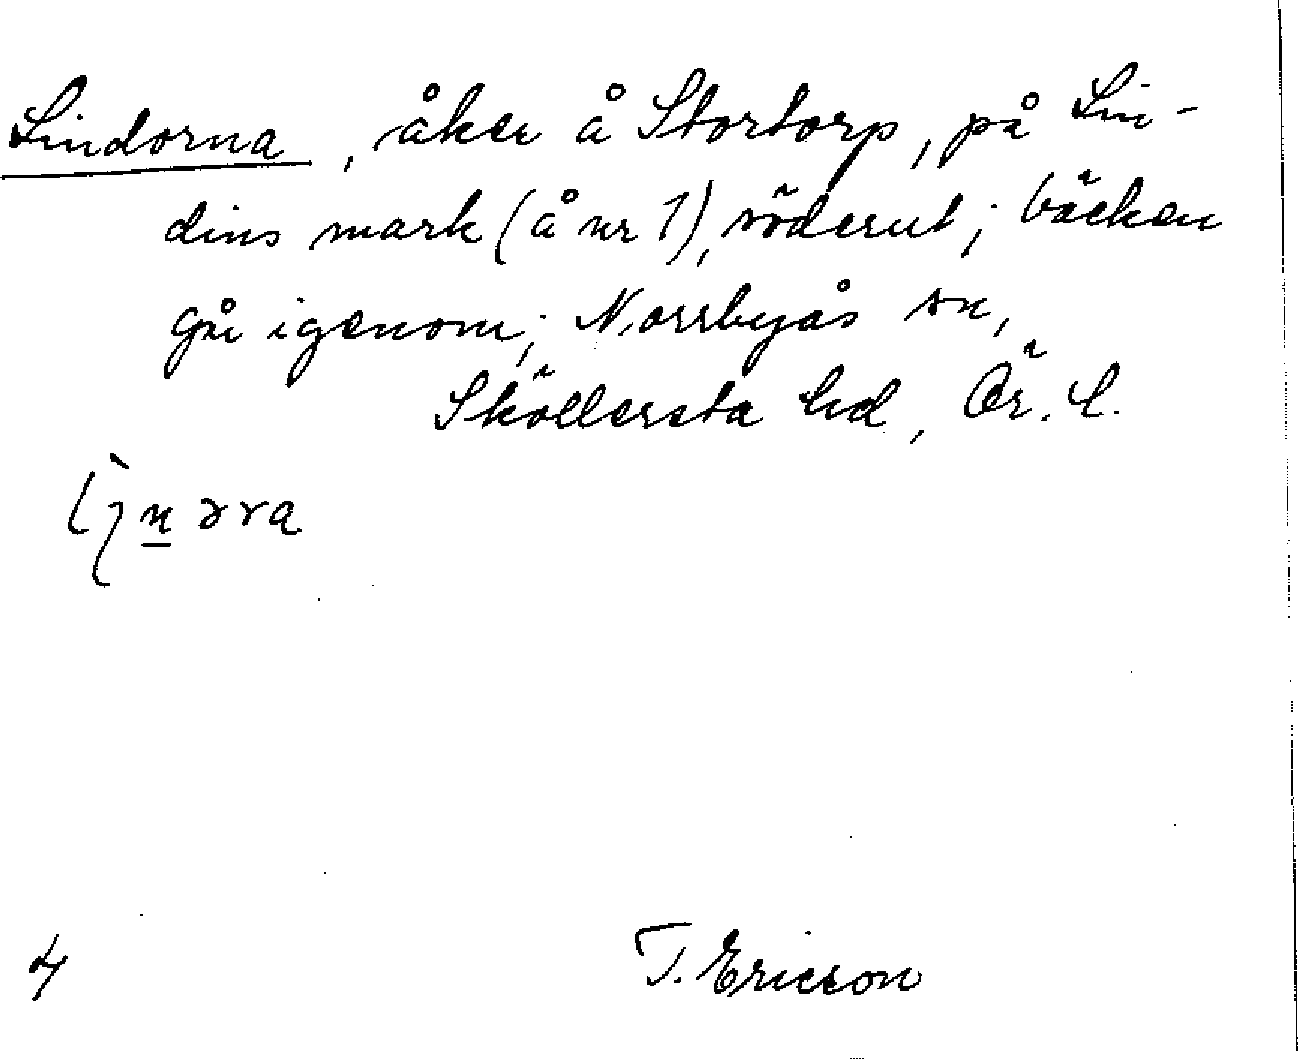 Lindorna, åker å Stortorp, på Lin-
dins mark (å nr 1), söderut; bäcken
går igenom; Norrbyås sn,
Sköllersta hd, Ör. l.
4
T. Ericson